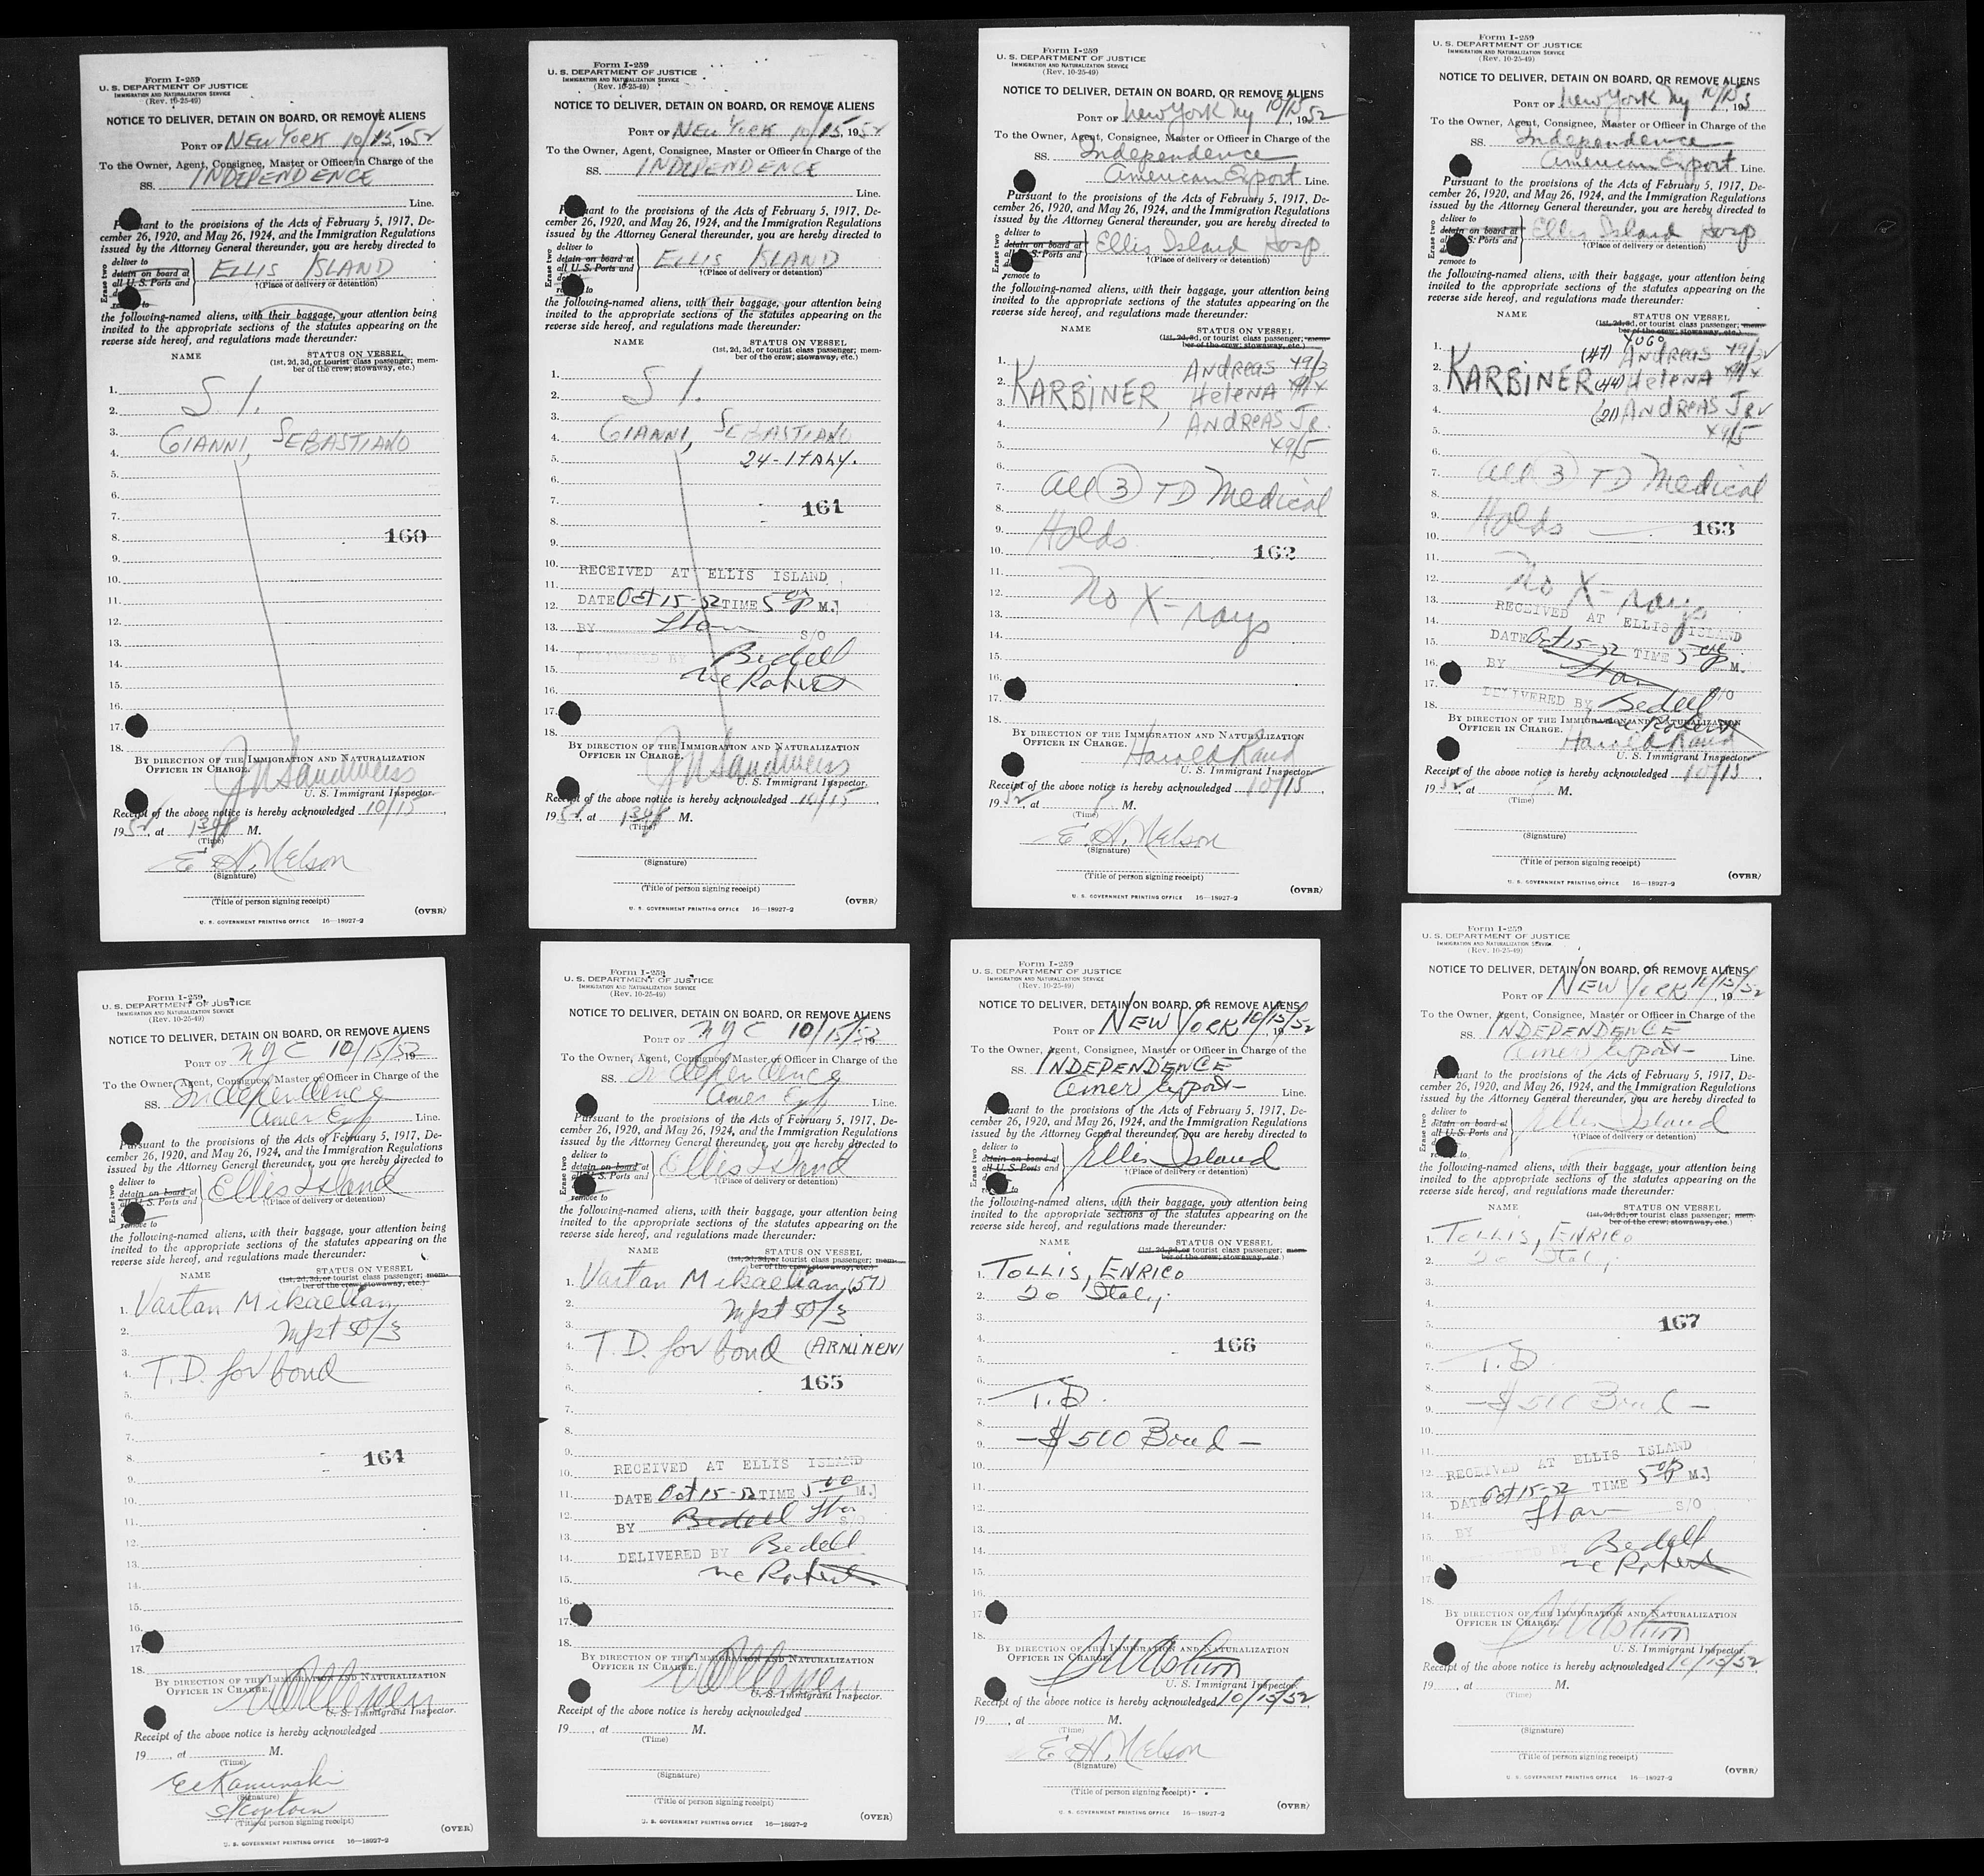 Form I-259
U. S. DEPARTMENT OF JUSTICE
IMMIGRATION AND NATURALIZATION SERVICE
(Rev. 10-25-49)
NOTICE TO DELIVER, DETAIN ON BOARD, OR REMOVE ALIENS
PORT OF NEW YORK 10/15, 1952
To the Owner, Agent, Consignee, Master or Officer in Charge of the
SS. INDEPENDENCE
Line.
Pursuant to the provisions of the Acts of February 5, 1917, De-
cember 26, 1920, and May 26, 1924, and the Immigration Regulations
issued by the Attorney General thereunder, you are hereby directed to
Erase two
deliver to
detain on board at
all U. S. Ports and
remove to
ELLIS ISLAND
†(Place of delivery or detention)
the following-named aliens, with their baggage, your attention being
invited to the appropriate sections of the statutes appearing on the
reverse side hereof, and regulations made thereunder:
NAME STATUS ON VESSEL
(1st, 2d, 3d, or tourist class passenger; mem-
ber of the crew; stowaway, etc.)
1.
2. S I.
3.
4. GIANNI, SEBASTIANO
5.
6.
7.
8. 160
9.
10.
11.
12.
13.
14.
15.
16.
17.
18.
BY DIRECTION OF THE IMMIGRATION AND NATURALIZATION
OFFICER IN CHARGE.
U. S. Immigrant Inspector.
Receipt of the above notice is hereby acknowledged 10/15,
1952, at 130 P M.
(Time)
E. H. Nelson
(Signature)
(Title of person signing receipt)
U. S. GOVERNMENT PRINTING OFFICE 16—18927-2
(OVER)
Form I-259
U. S. DEPARTMENT OF JUSTICE
IMMIGRATION AND NATURALIZATION SERVICE
(Rev. 10-25-49)
NOTICE TO DELIVER, DETAIN ON BOARD, OR REMOVE ALIENS
PORT OF NEW YORK 10/15, 1952
To the Owner, Agent, Consignee, Master or Officer in Charge of the
SS. INDEPENDENCE
Line.
Pursuant to the provisions of the Acts of February 5, 1917, De-
cember 26, 1920, and May 26, 1924, and the Immigration Regulations
issued by the Attorney General thereunder, you are hereby directed to
Erase two
deliver to
detain on board at
all U. S. Ports and
remove to
ELLIS ISLAND
†(Place of delivery or detention)
the following-named aliens, with their baggage, your attention being
invited to the appropriate sections of the statutes appearing on the
reverse side hereof, and regulations made thereunder:
NAME STATUS ON VESSEL
(1st, 2d, 3d, or tourist class passenger; mem-
ber of the crew; stowaway, etc.)
1.
2. S I.
3.
4. GIANNI, SEBASTIANO
5. 24-ITALY.
6.
7. 161
8.
9.
10. RECEIVED AT ELLIS ISLAND
11.
12. DATE Oct 15-52 TIME 5 00 P M.
13. BY S/O
14. DELIVERED BY Bedell
15. McRoberts
16.
17.
18.
BY DIRECTION OF THE IMMIGRATION AND NATURALIZATION
OFFICER IN CHARGE.
U. S. Immigrant Inspector.
Receipt of the above notice is hereby acknowledged 10/15,
1952, at 130 P M.
(Time)
(Signature)
(Title of person signing receipt)
U. S. GOVERNMENT PRINTING OFFICE 16—18927-2
(OVER)
Form I-259
U. S. DEPARTMENT OF JUSTICE
IMMIGRATION AND NATURALIZATION SERVICE
(Rev. 10-25-49)
NOTICE TO DELIVER, DETAIN ON BOARD, OR REMOVE ALIENS
PORT OF New York Ny 10/15, 1952
To the Owner, Agent, Consignee, Master or Officer in Charge of the
SS. Independence
American Export Line.
Pursuant to the provisions of the Acts of February 5, 1917, De-
cember 26, 1920, and May 26, 1924, and the Immigration Regulations
issued by the Attorney General thereunder, you are hereby directed to
Erase two
deliver to
detain on board at
all U. S. Ports and
remove to
Ellis Island Hosp
†(Place of delivery or detention)
the following-named aliens, with their baggage, your attention being
invited to the appropriate sections of the statutes appearing on the
reverse side hereof, and regulations made thereunder:
NAME STATUS ON VESSEL
(1st, 2d, 3d, or tourist class passenger; mem-
ber of the crew; stowaway, etc.)
1. Andreas 49/3
2. KARBINER Helena 49/4
3.
4. Andreas Jr.
5. 49/5
6.
7. all 3 TD Medical
8.
9. Holds
10. 162
11.
12. No X-rays
13.
14.
15.
16.
17.
18.
BY DIRECTION OF THE IMMIGRATION AND NATURALIZATION
OFFICER IN CHARGE. Harold Rand
U. S. Immigrant Inspector.
Receipt of the above notice is hereby acknowledged 10/15
1952, at M.
(Time)
E. H. Nelson
(Signature)
(Title of person signing receipt)
U. S. GOVERNMENT PRINTING OFFICE 16—18927-2
(OVER)
Form I-259
U. S. DEPARTMENT OF JUSTICE
IMMIGRATION AND NATURALIZATION SERVICE
(Rev. 10-25-49)
NOTICE TO DELIVER, DETAIN ON BOARD, OR REMOVE ALIENS
PORT OF New York Ny 10/15, 195
To the Owner, Agent, Consignee, Master or Officer in Charge of the
SS. Independence
American Export Line.
Pursuant to the provisions of the Acts of February 5, 1917, De-
cember 26, 1920, and May 26, 1924, and the Immigration Regulations
issued by the Attorney General thereunder, you are hereby directed to
Erase two
deliver to
detain on board at
all U. S. Ports and
remove to
Ellis Island Hosp
†(Place of delivery or detention)
the following-named aliens, with their baggage, your attention being
invited to the appropriate sections of the statutes appearing on the
reverse side hereof, and regulations made thereunder:
NAME STATUS ON VESSEL
(1st, 2d, 3d, or tourist class passenger; mem-
ber of the crew; stowaway, etc.)
YUGO
1. (47) Andreas 49/3
2. KARBINER (44) Helena 49/4
3.
4. (21) Andreas Jr
5. 49/5
6.
7. all 3 TD Medical
8.
9. Holds 163
10.
11.
12. No X-rays
13. RECEIVED AT ELLIS ISLAND
14.
15. DATE Oct 15-52 TIME 5 00 P M.
16. BY
17. S/O
18. DELIVERED BY Bedell
McRoberts
BY DIRECTION OF THE IMMIGRATION AND NATURALIZATION
OFFICER IN CHARGE. Harold Rand
U. S. Immigrant Inspector.
Receipt of the above notice is hereby acknowledged 10/15
1952, at M.
(Time)
(Signature)
(Title of person signing receipt)
U. S. GOVERNMENT PRINTING OFFICE 16—18927-2
(OVER)
Form I-259
U. S. DEPARTMENT OF JUSTICE
IMMIGRATION AND NATURALIZATION SERVICE
(Rev. 10-25-49)
NOTICE TO DELIVER, DETAIN ON BOARD, OR REMOVE ALIENS
PORT OF NYC 10/15/52
To the Owner, Agent, Consignee, Master or Officer in Charge of the
SS. Independence
Amer Exp Line.
Pursuant to the provisions of the Acts of February 5, 1917, De-
cember 26, 1920, and May 26, 1924, and the Immigration Regulations
issued by the Attorney General thereunder, you are hereby directed to
Erase two
deliver to
detain on board at
all U. S. Ports and
remove to
Ellis Island
†(Place of delivery or detention)
the following-named aliens, with their baggage, your attention being
invited to the appropriate sections of the statutes appearing on the
reverse side hereof, and regulations made thereunder:
NAME STATUS ON VESSEL
(1st, 2d, 3d, or tourist class passenger; mem-
ber of the crew; stowaway, etc.)
1. Vartan Mikaelian
2. Mfst 50/3
3.
4. T.D. for bond
5.
6.
7.
8. 164
9.
10.
11.
12.
13.
14.
15.
16.
17.
18.
BY DIRECTION OF THE IMMIGRATION AND NATURALIZATION
OFFICER IN CHARGE.
U. S. Immigrant Inspector.
Receipt of the above notice is hereby acknowledged
19, at M.
(Time)
E. Kaminski
(Signature)
(Title of person signing receipt)
U. S. GOVERNMENT PRINTING OFFICE 16—18927-2
(OVER)
Form I-259
U. S. DEPARTMENT OF JUSTICE
IMMIGRATION AND NATURALIZATION SERVICE
(Rev. 10-25-49)
NOTICE TO DELIVER, DETAIN ON BOARD, OR REMOVE ALIENS
PORT OF NYC 10/15/52
To the Owner, Agent, Consignee, Master or Officer in Charge of the
SS. Independence
Amer Exp Line.
Pursuant to the provisions of the Acts of February 5, 1917, De-
cember 26, 1920, and May 26, 1924, and the Immigration Regulations
issued by the Attorney General thereunder, you are hereby directed to
Erase two
deliver to
detain on board at
all U. S. Ports and
remove to
Ellis Island
†(Place of delivery or detention)
the following-named aliens, with their baggage, your attention being
invited to the appropriate sections of the statutes appearing on the
reverse side hereof, and regulations made thereunder:
NAME STATUS ON VESSEL
(1st, 2d, 3d, or tourist class passenger; mem-
ber of the crew; stowaway, etc.)
1. Vartan Mikaelian (57)
2. Mfst 50/3
3.
4. T.D. for bond (ARMINEN)
5.
6. 165
7.
8.
9.
10. RECEIVED AT ELLIS ISLAND
11. DATE Oct 15-52 TIME 5 00 M.
12. BY Bedell S/O
13. Bedell
14. DELIVERED BY
15. McRoberts
16.
17.
18.
BY DIRECTION OF THE IMMIGRATION AND NATURALIZATION
OFFICER IN CHARGE.
U. S. Immigrant Inspector.
Receipt of the above notice is hereby acknowledged
19, at M.
(Time)
(Signature)
(Title of person signing receipt)
U. S. GOVERNMENT PRINTING OFFICE 16—18927-2
(OVER)
Form I-259
U. S. DEPARTMENT OF JUSTICE
IMMIGRATION AND NATURALIZATION SERVICE
(Rev. 10-25-49)
NOTICE TO DELIVER, DETAIN ON BOARD, OR REMOVE ALIENS
PORT OF NEW YORK 10/15/52
To the Owner, Agent, Consignee, Master or Officer in Charge of the
SS. INDEPENDENCE
(Amer) Export Line.
Pursuant to the provisions of the Acts of February 5, 1917, De-
cember 26, 1920, and May 26, 1924, and the Immigration Regulations
issued by the Attorney General thereunder, you are hereby directed to
Erase two
deliver to
detain on board at
all U. S. Ports and
remove to
Ellis Island
†(Place of delivery or detention)
the following-named aliens, with their baggage, your attention being
invited to the appropriate sections of the statutes appearing on the
reverse side hereof, and regulations made thereunder:
NAME STATUS ON VESSEL
(1st, 2d, 3d, or tourist class passenger; mem-
ber of the crew; stowaway, etc.)
1. TOLLIS, ENRICO
2. 20 Italy
3.
4. 166
5.
6.
7. T.D.
8.
9. —$500 Bond—
10.
11.
12.
13.
14.
15.
16.
17.
18.
BY DIRECTION OF THE IMMIGRATION AND NATURALIZATION
OFFICER IN CHARGE.
U. S. Immigrant Inspector.
Receipt of the above notice is hereby acknowledged 10/15/52
19, at M.
(Time)
E. H. Nelson
(Signature)
(Title of person signing receipt)
U. S. GOVERNMENT PRINTING OFFICE 16—18927-2
(OVER)
Form I-259
U. S. DEPARTMENT OF JUSTICE
IMMIGRATION AND NATURALIZATION SERVICE
(Rev. 10-25-49)
NOTICE TO DELIVER, DETAIN ON BOARD, OR REMOVE ALIENS
PORT OF NEW YORK 10/15/52
To the Owner, Agent, Consignee, Master or Officer in Charge of the
SS. INDEPENDENCE
(Amer) Export Line.
Pursuant to the provisions of the Acts of February 5, 1917, De-
cember 26, 1920, and May 26, 1924, and the Immigration Regulations
issued by the Attorney General thereunder, you are hereby directed to
Erase two
deliver to
detain on board at
all U. S. Ports and
remove to
Ellis Island
†(Place of delivery or detention)
the following-named aliens, with their baggage, your attention being
invited to the appropriate sections of the statutes appearing on the
reverse side hereof, and regulations made thereunder:
NAME STATUS ON VESSEL
(1st, 2d, 3d, or tourist class passenger; mem-
ber of the crew; stowaway, etc.)
1. TOLLIS, ENRICO
2. 20 Italy
3.
4.
5. 167
6.
7. T.D.
8.
9. —$500 Bond—
10.
11.
12. RECEIVED AT ELLIS ISLAND
13. DATE Oct 15-52 TIME 5 00 P M.
14. S/O
15. BY Bedell
16. McRoberts
17.
18.
BY DIRECTION OF THE IMMIGRATION AND NATURALIZATION
OFFICER IN CHARGE.
U. S. Immigrant Inspector.
Receipt of the above notice is hereby acknowledged 10/15/52
19, at M.
(Time)
(Signature)
(Title of person signing receipt)
U. S. GOVERNMENT PRINTING OFFICE 16—18927-2
(OVER)